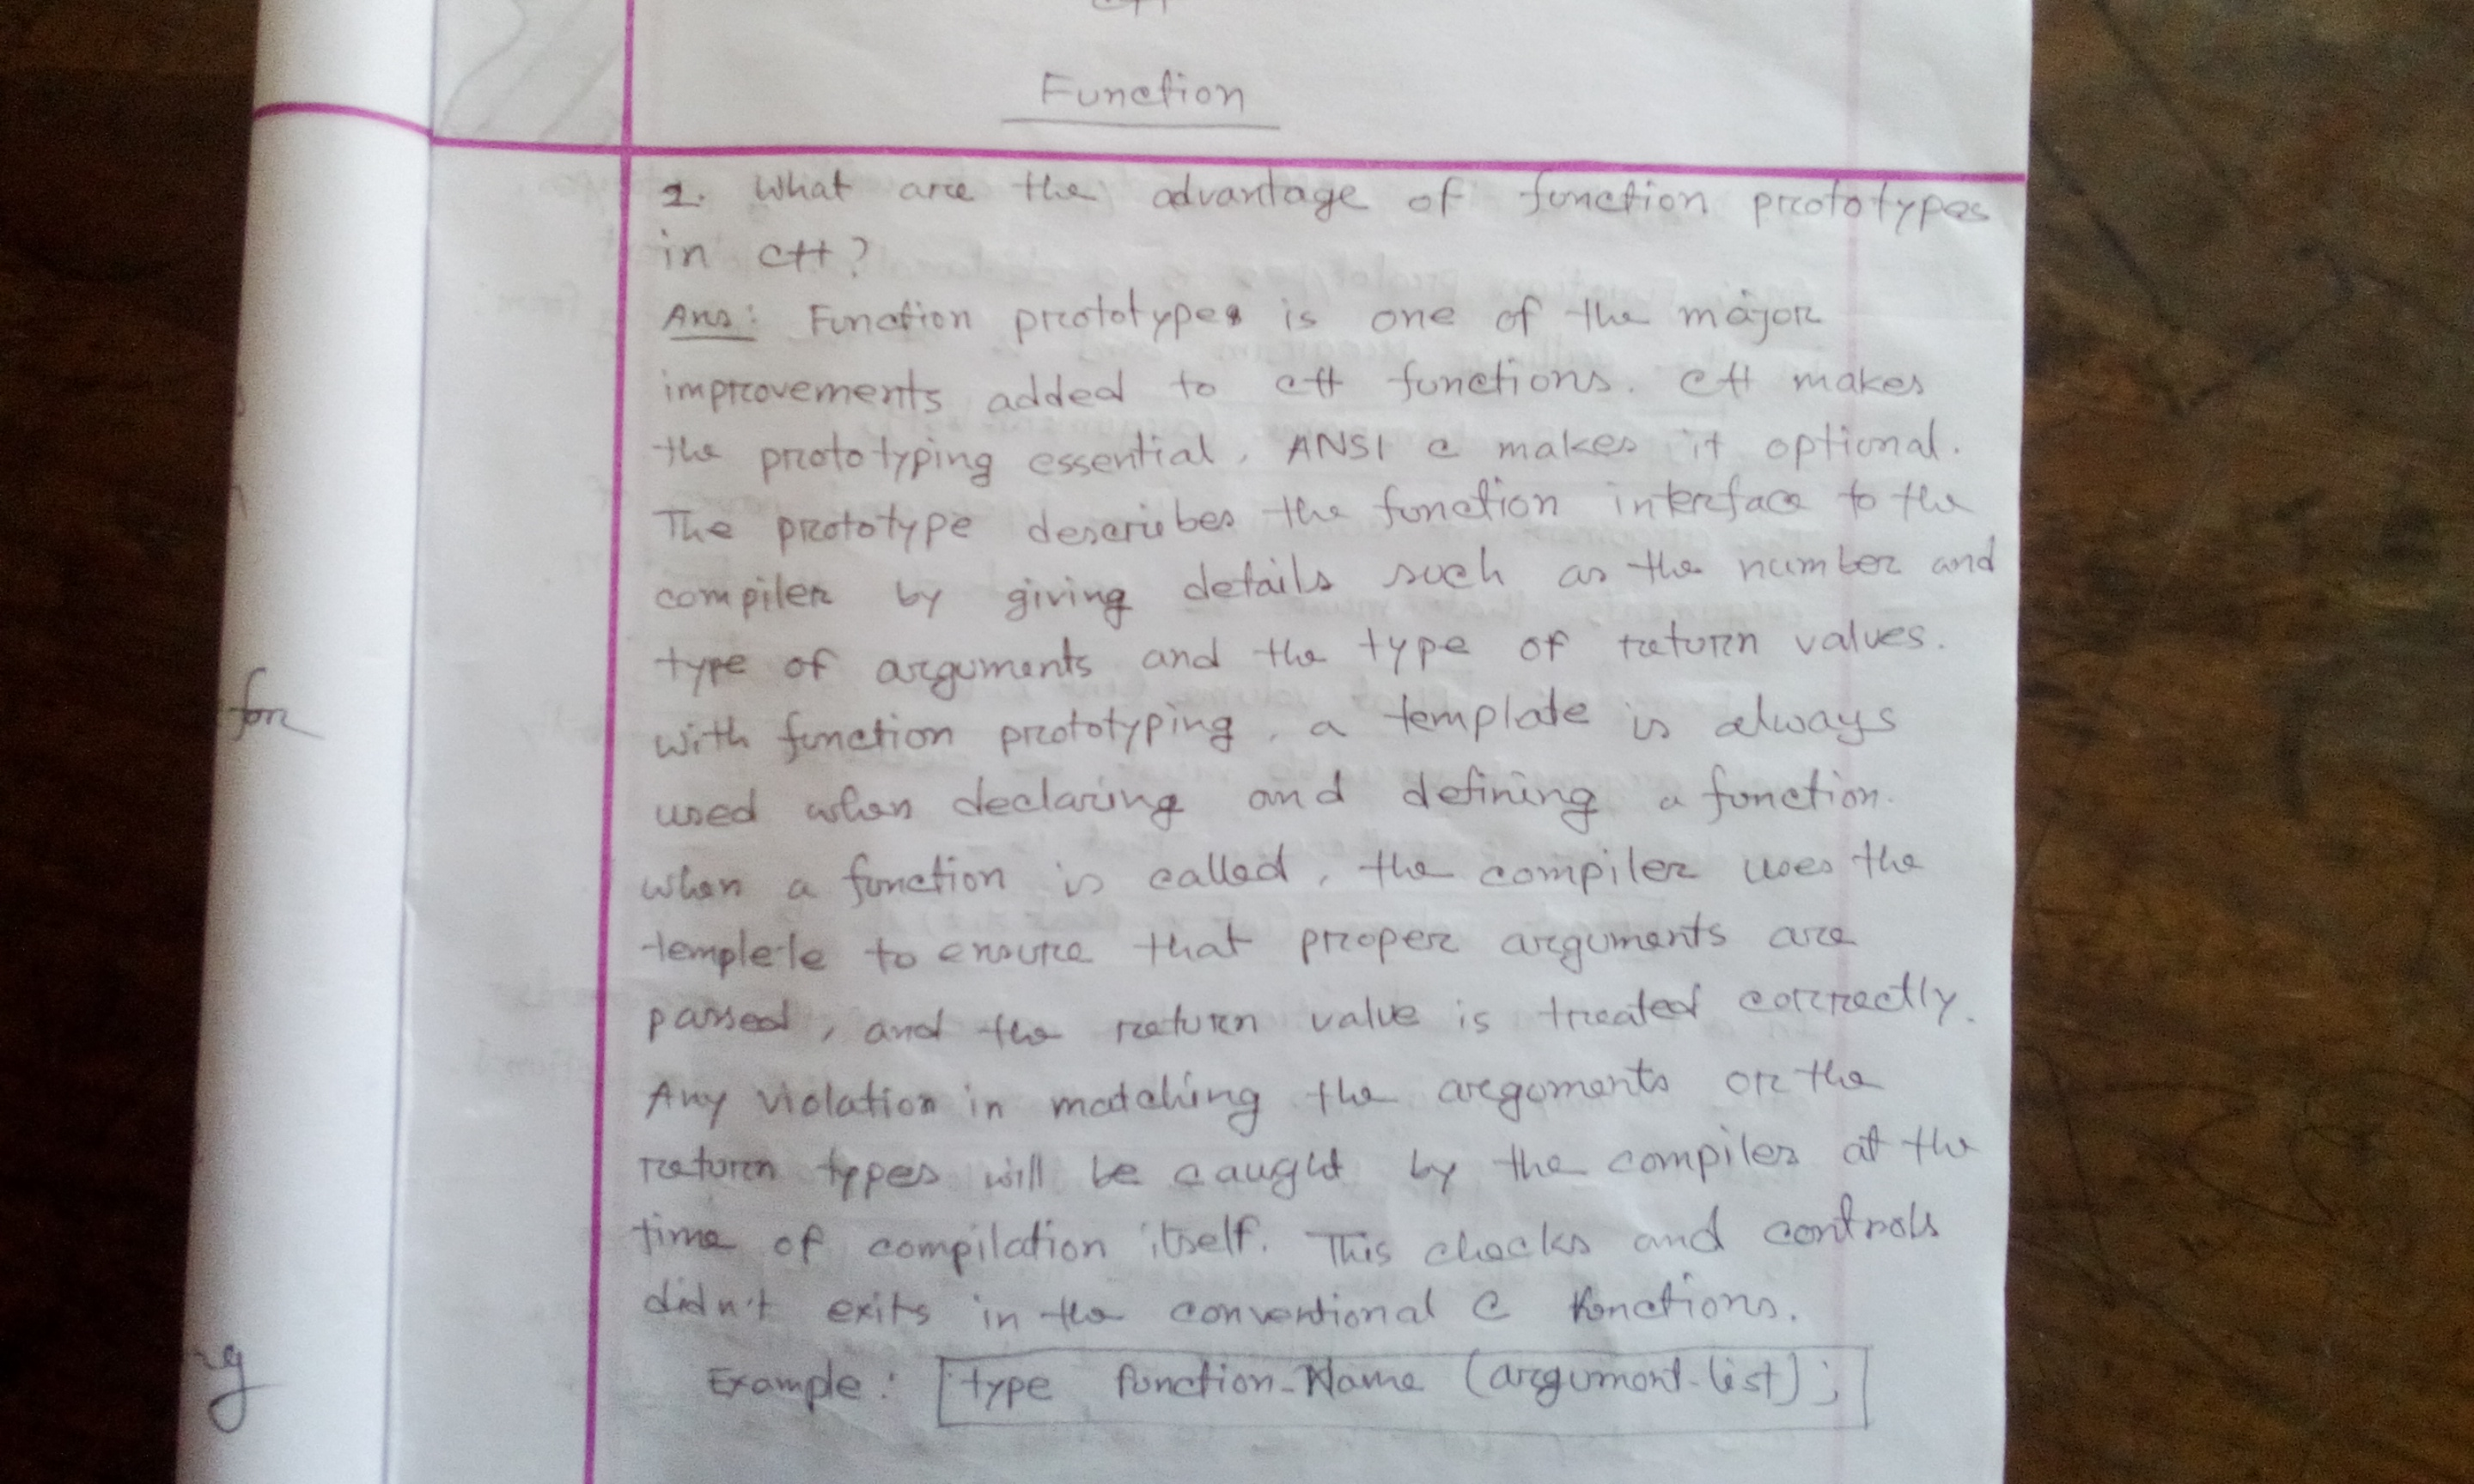 Function
1. What are the advantage of function prototypes
in C++?
Ans: Function prototypes is one of the major
improvements added to C++ functions. C++ makes
the prototyping essential, ANSI C makes it optional.
The prototype describes the function interface to the
compiler by giving details such as the number and
type of arguments and the type of return values.
with function prototyping, a template is always
used when declaring and defining a function.
when a function is called, the compiler uses the
templete to ensure that proper arguments are
passed, and the return value is treated correctly.
Any violation in matching the arguments or the
return types will be caught by the compiler at the
time of compilation itself. This checks and controls
didn't exits in the conventional C functions.
Example: type function-Name (argument-list);
for